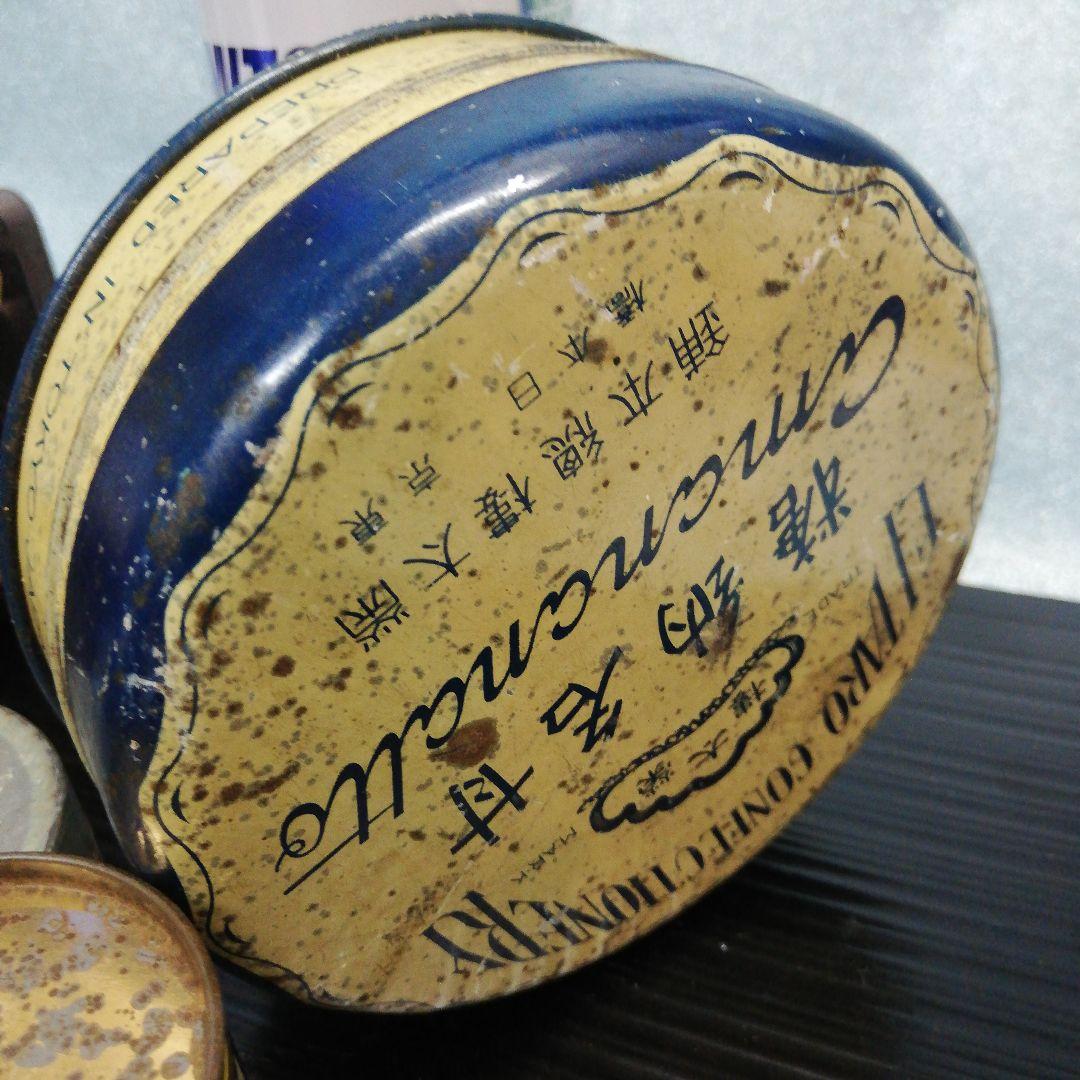 EITARO CONFECTIONERY
TRADE MARK
榮太樓
甘名納糖
Amanatto
榮太樓總本鋪
東京日本橋
PREPARED IN TOKYO